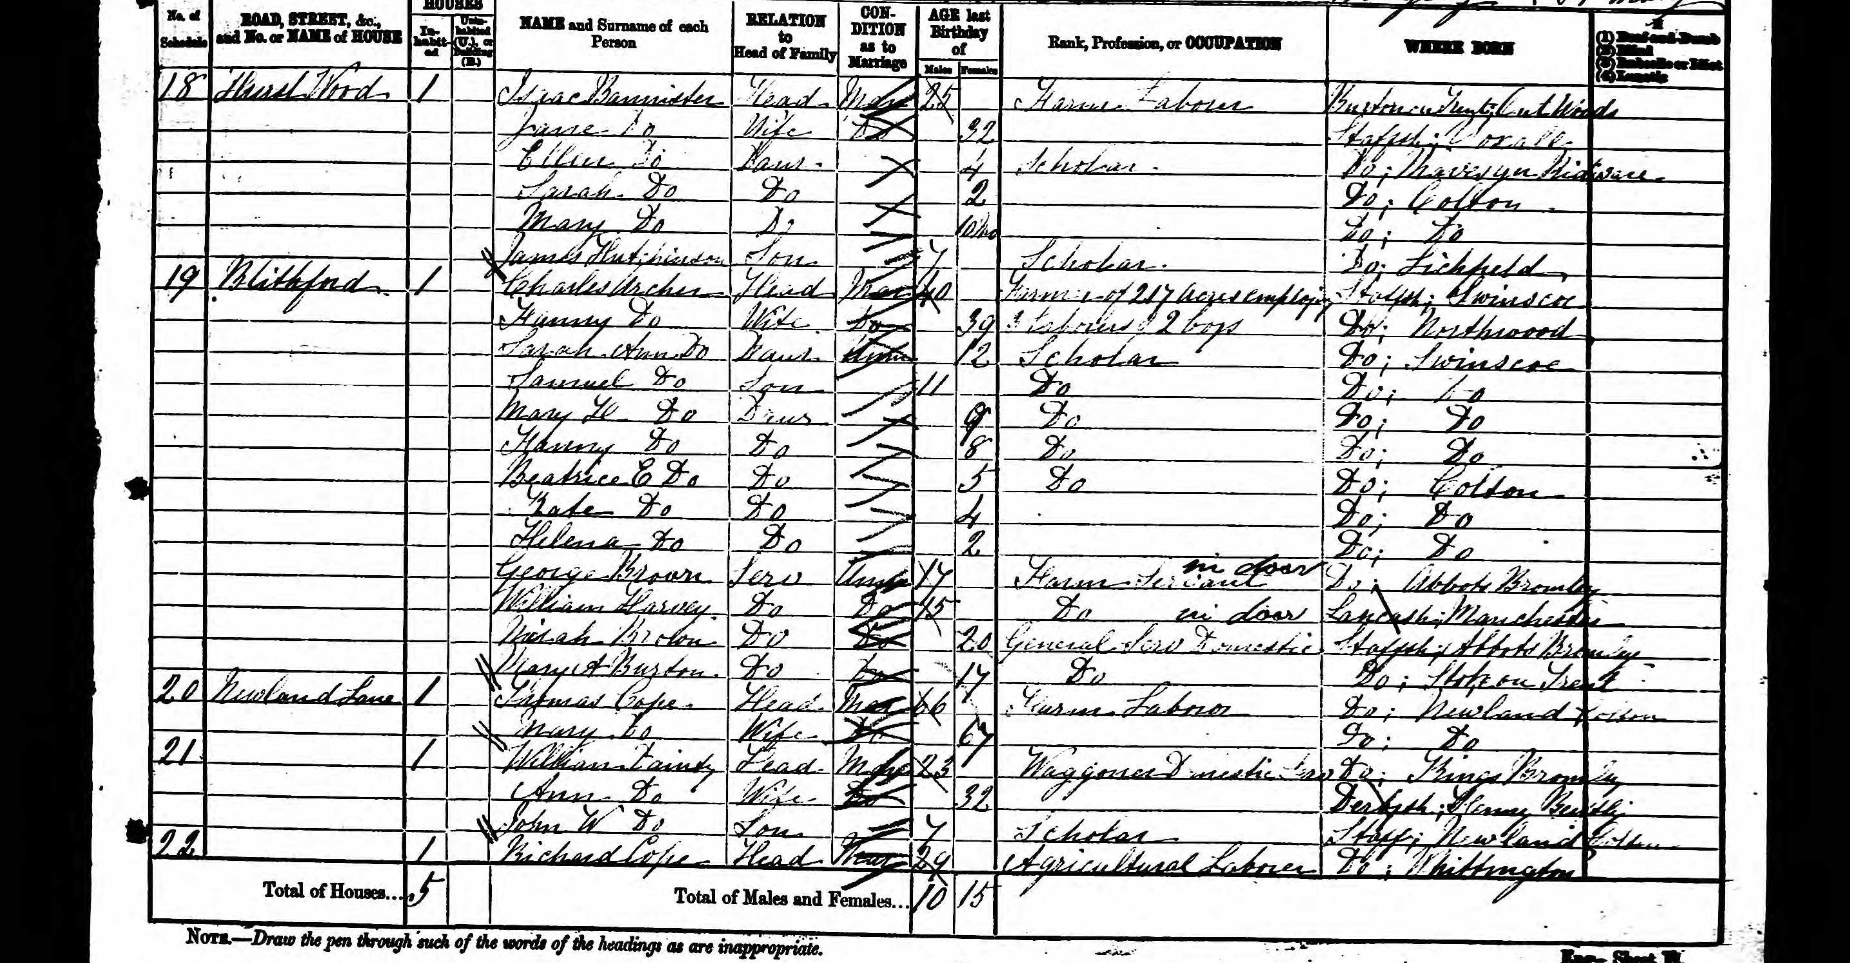 No. of Schedule ROAD, STREET, &c., and No. or NAME of HOUSE HOUSES In-habit-ed Unin-habited (U.), or Building (B.) NAME and Surname of each Person RELATION to Head of Family CON-DITION as to Marriage AGE last Birthday of Males Females Rank, Profession, or OCCUPATION WHERE BORN (1) Deaf-and-Dumb (2) Blind (3) Imbecile or Idiot (4) Lunatic
18 Hurst Wood 1 Isaac Bannister Head Mar 25 Farm Labour Burton on Trent; Cut Woods
Jane Do Wife Do 32 Staffsh;
Ellen Do Daur 4 Scholar Do; Mavesyn Ridware
Sarah Do Do 2 Do; Colton
Mary Do Do 10 Mo Do; Do
James Hutchinson Son 7 Scholar Do; Lichfield
19 Blithford 1 Charles Archer Head Mar 40 Farmer of 217 Acres employing Staffsh; Swinscoe
Fanny Do Wife Do 39 3 Laborers & 2 boys Do; Northwood
Sarah Ann Do Daur Unm 12 Scholar Do; Swinscoe
Samuel Do Son 11 Do Do; Do
Mary H Do Daur 9 Do Do; Do
Fanny Do Do 8 Do Do; Do
Beatrice E Do Do 5 Do Do; Colton
Kate Do Do 4 Do; Do
Helena Do Do 2 Do; Do
George Brown Serv Unm 17 Farm Servant in door Do; Abbots Bromley
William Harvey Do Do 15 Do in door Lancash; Manchester
Brown Do Do 20 General Serv Domestic Staffsh; Abbots Bromley
Mary A Burton Do Do 17 Do Do; Stoke on Trent
20 Newland Lane 1 Thomas Cope Head Mar 66 Farm Labour Do; Newland Colton
Mary Do Wife Do 67 Do; Do
21 1 William Head Mar 23 Waggoner Domestic Serv Do; Kings Bromley
Ann Do Wife Do 32 Derbysh;
John W Do Son 7 Scholar Staff; Newland Colton
22 1 Richard Cope Head 29 Agricultural Laborer Do; Whittington
Total of Houses... 5 Total of Males and Females... 10 15
NOTE.—Draw the pen through such of the words of the headings as are inappropriate.
Eng.—Sheet